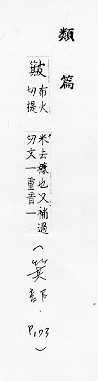 類篇
布火
切
米去糠也又補過
切文一重音一
(箕
P.173)